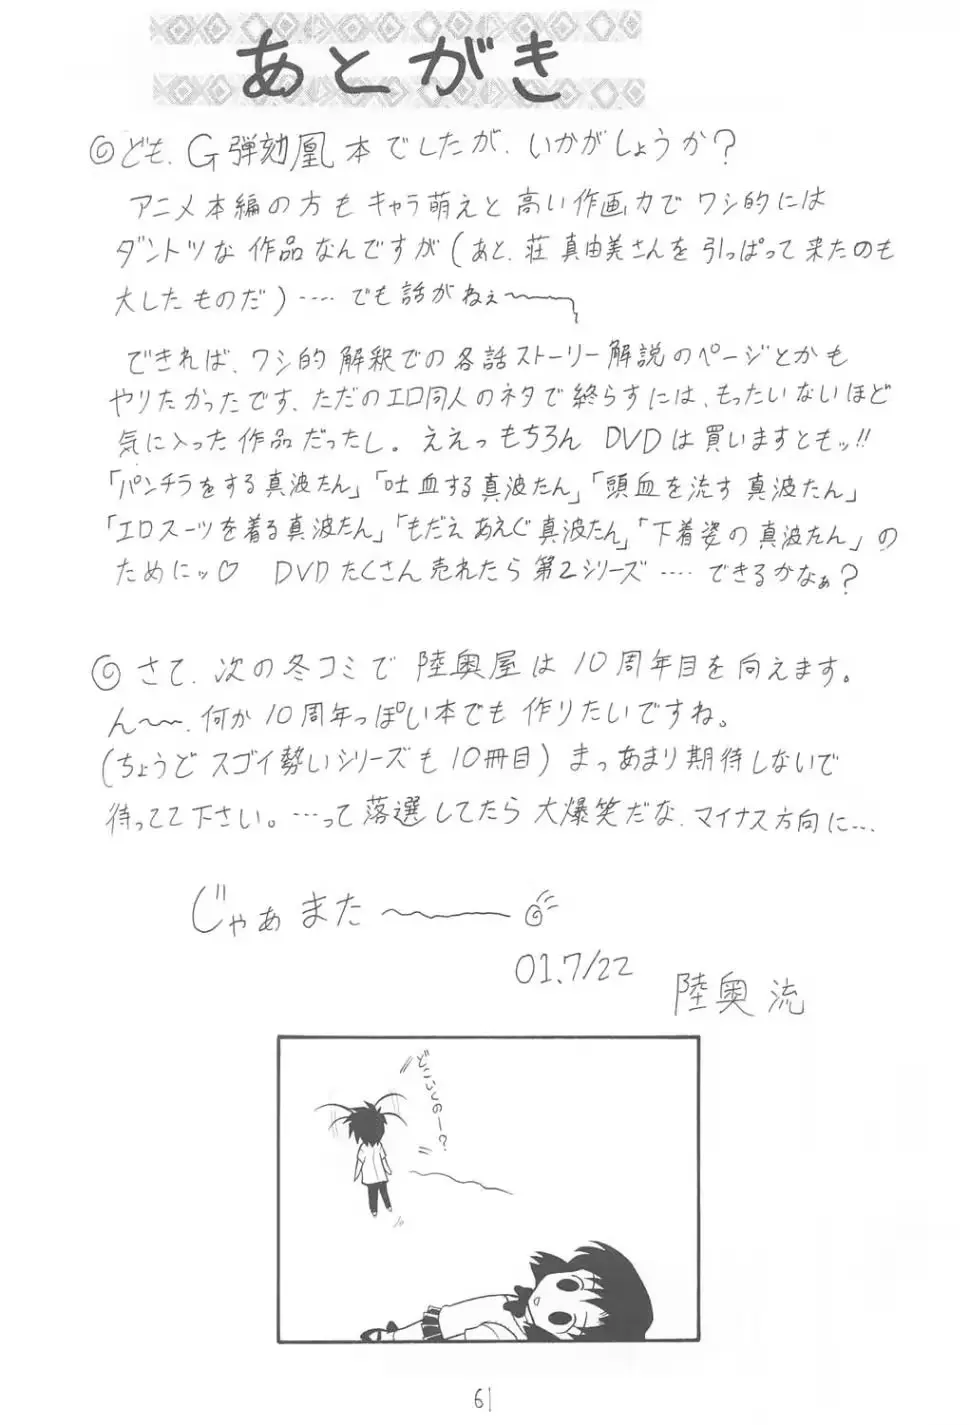 あとがき
◎ども、G弾劾凰本でしたが、いかがしょうか?
アニメ本編の方もキャラ萌えと高い作画力でワシ的には
ダントツな作品なんですが(あと、荘真由美さんを引っぱって来たのも
大したものだ)‥‥でも話がねぇ〜
できれば、ワシ的解釈での各話ストーリー解説のページとかも
やりたかったです、ただのエロ同人のネタで終らすには、もったいないほど
気に入った作品だったし。ええっもちろん DVDは買いますともッ!!
「パンチラをする真波たん」「吐血する真波たん」「頭血を流す真波たん」
「エロスーツを着る真波たん」「もだえあえぐ真波たん」「下着姿の真波たん」の
ためにッ♡ DVDたくさん売れたら第2シリーズ‥‥できるかなぁ?
◎さて、次の冬コミで陸奥屋は10周年目を向えます。
ん〜〜、何か10周年っぽい本でも作りたいですね。
(ちょうどスゴイ勢いシリーズも10冊目)まっあまり期待しないで
待ってて下さい。‥‥って落選してたら大爆笑だな、マイナス方向に‥‥
じゃぁまた〜
01.7/22
陸奥流
どこいくのー?
61